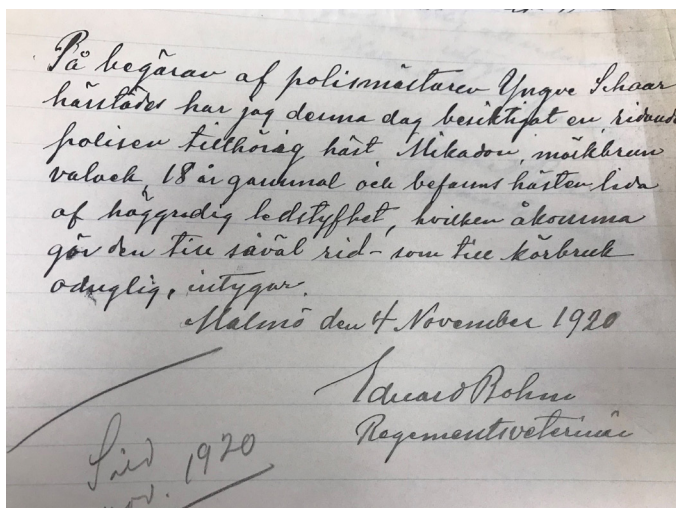 På begäran af polismästaren Yngve Schaar
härstädes har jag denna dag besiktigat en, ridande
polisen tillhörig häst Mikadon, mörkbrun
valack, 18 år gammal och befanns hästen lida
af höggradig ledstyfhet, hvilken åkomma
gör den till såväl rid- som till körbruk
oduglig, intygar.
Malmö den 4 November 1920
Eduard Bohm
Regementsveterinär
Såld
nov. 1920